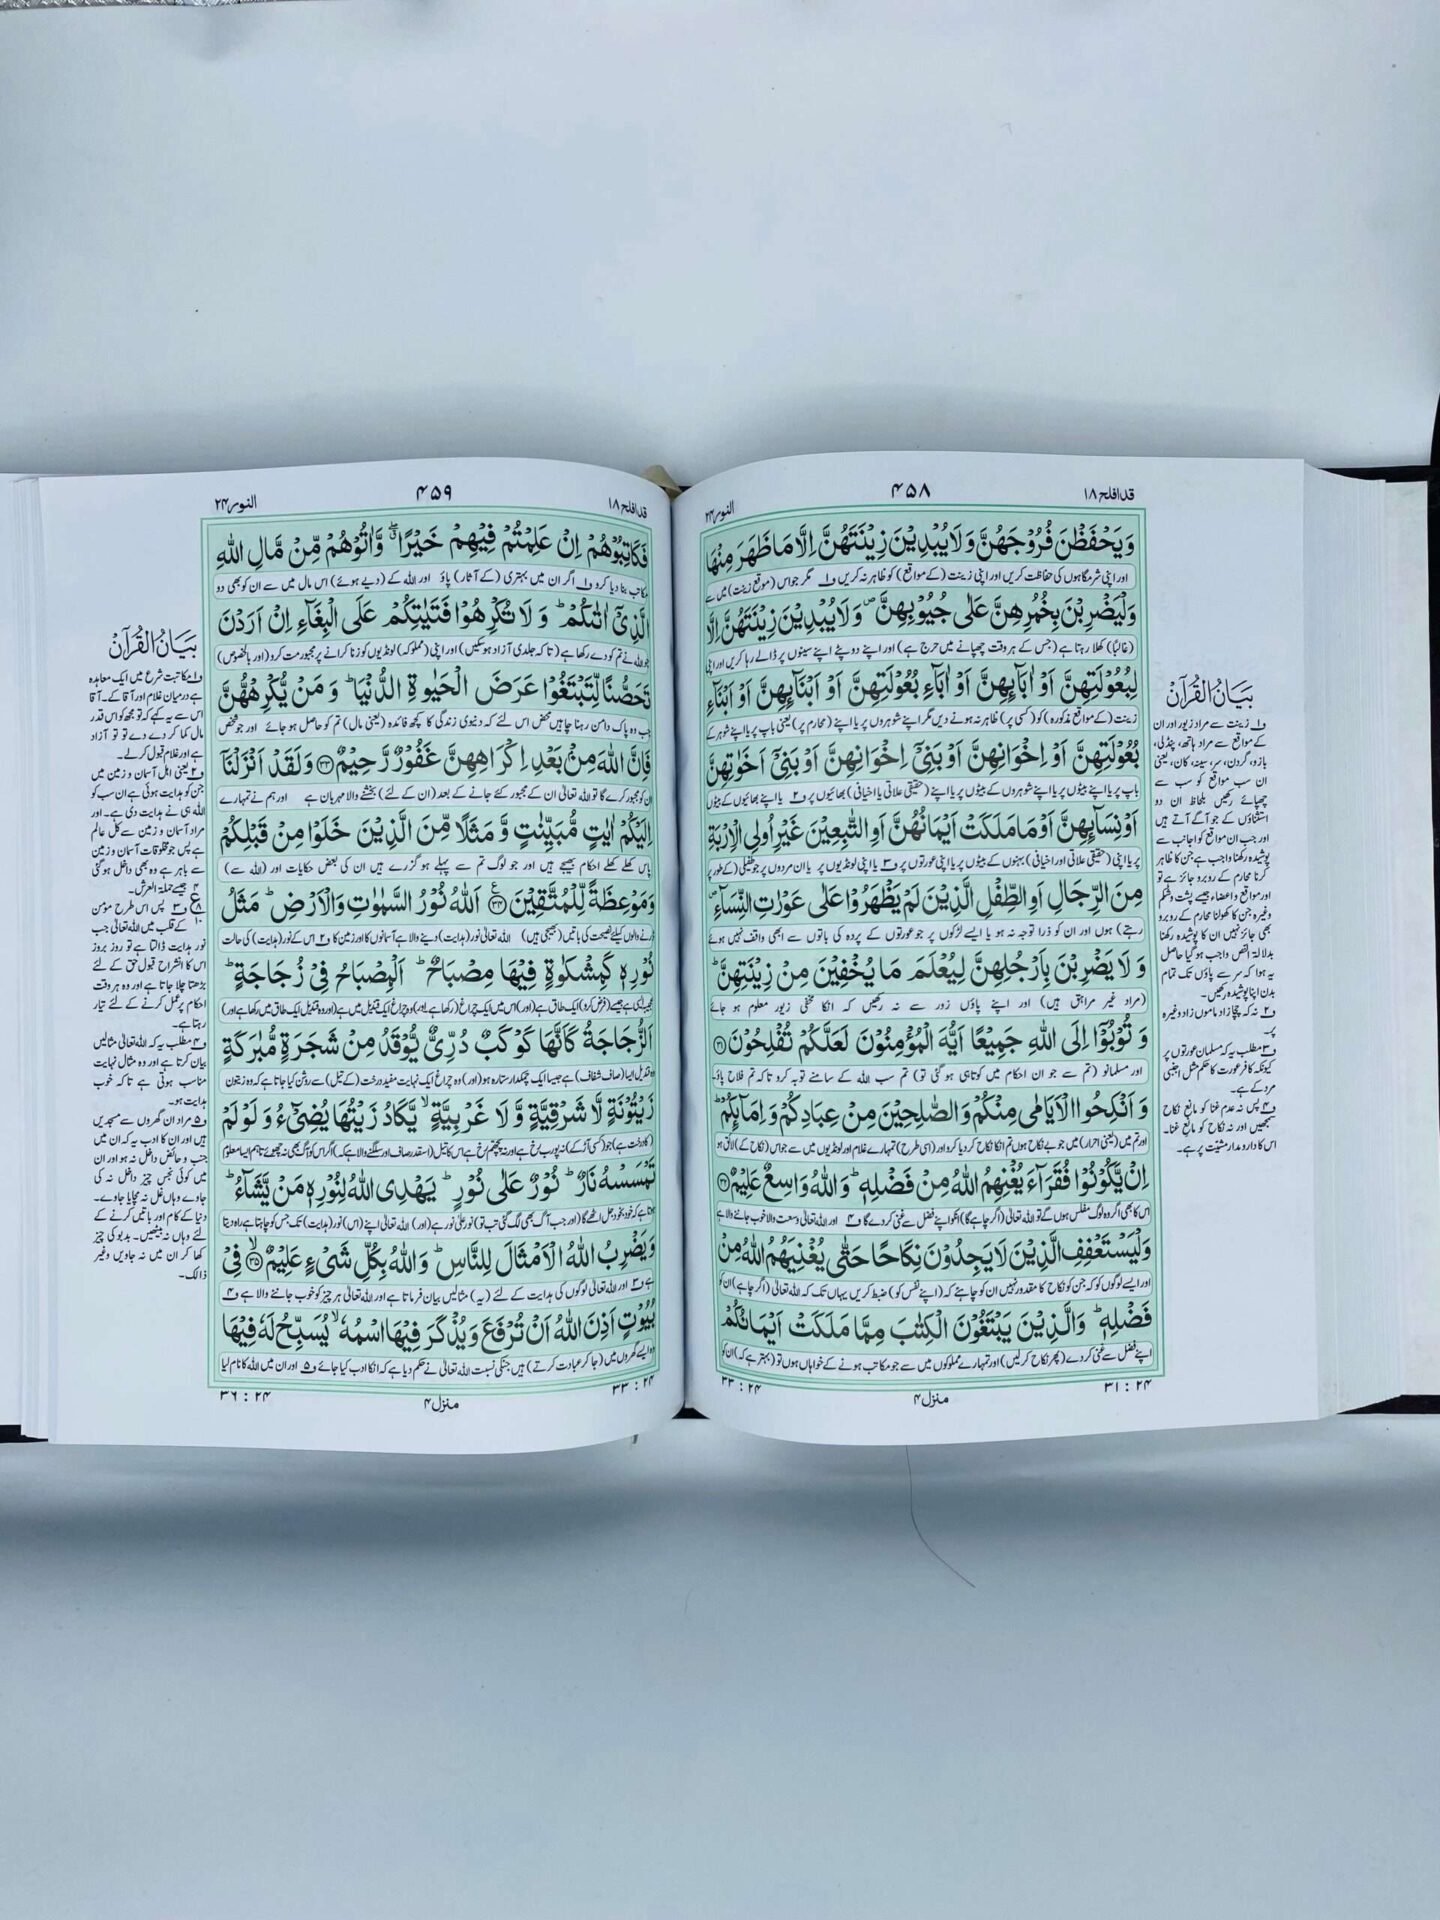 قد افلح ١٨
۴۵۸
النور ۲۴
وَيَحْفَظْنَ فُرُوْجَهُنَّ وَلَا يُبْدِيْنَ زِيْنَتَهُنَّ اِلَّا مَا ظَهَرَ مِنْهَا
اور اپنی شرمگاہوں کی حفاظت کریں اور اپنی زینت (کے مواقع) کو ظاہر نہ کریں ف۱ مگر جو اس (موقع زینت) میں سے
وَلْيَضْرِبْنَ بِخُمُرِهِنَّ عَلٰى جُيُوْبِهِنَّ ۪ وَلَا يُبْدِيْنَ زِيْنَتَهُنَّ اِلَّا
(غالباً) کھلا رہتا ہے (جس کے ہر وقت چھپانے میں حرج ہے) اور اپنے دوپٹے اپنے سینوں پر ڈالے رہا کریں اور اپنی
لِبُعُوْلَتِهِنَّ اَوْ اٰبَآئِهِنَّ اَوْ اٰبَآءِ بُعُوْلَتِهِنَّ اَوْ اَبْنَآئِهِنَّ اَوْ اَبْنَآءِ
زینت (کے مواقع مذکورہ) کو (کسی پر) ظاہر نہ ہونے دیں مگر اپنے شوہروں پر یا اپنے (محارم پر) یعنی باپ پر یا اپنے شوہر کے
بُعُوْلَتِهِنَّ اَوْ اِخْوَانِهِنَّ اَوْ بَنِيْۤ اِخْوَانِهِنَّ اَوْ بَنِيْۤ اَخَوٰتِهِنَّ
باپ پر یا اپنے بیٹوں پر یا اپنے شوہروں کے بیٹوں پر یا اپنے (حقیقی علاتی یا اخیافی) بھائیوں پر ف۲ یا اپنے بھائیوں کے بیٹوں
اَوْ نِسَآئِهِنَّ اَوْ مَا مَلَكَتْ اَيْمَانُهُنَّ اَوِ التّٰبِعِيْنَ غَيْرِ اُولِي الْاِرْبَةِ
پر یا اپنی (حقیقی علاتی اور اخیافی) بہنوں کے بیٹوں پر یا اپنی عورتوں پر ف۳ یا اپنی لونڈیوں پر یا ان مردوں پر جو طفیلی (کے طور پر
مِنَ الرِّجَالِ اَوِ الطِّفْلِ الَّذِيْنَ لَمْ يَظْهَرُوْا عَلٰى عَوْرٰتِ النِّسَآءِ ۪
رہتے) ہوں اور ان کو ذرا توجہ نہ ہو یا ایسے لڑکوں پر جو عورتوں کے پردہ کی باتوں سے ابھی واقف نہیں ہوئے
وَلَا يَضْرِبْنَ بِاَرْجُلِهِنَّ لِيُعْلَمَ مَا يُخْفِيْنَ مِنْ زِيْنَتِهِنَّ ؕ
(مراد غیر مراہق ہیں) اور اپنے پاؤں زور سے نہ رکھیں کہ انکا مخفی زیور معلوم ہو جائے
وَتُوْبُوْۤا اِلَى اللّٰهِ جَمِيْعًا اَيُّهَ الْمُؤْمِنُوْنَ لَعَلَّكُمْ تُفْلِحُوْنَ ﴿۳۱﴾
اور مسلمانو (تم سے جو ان احکام میں کوتاہی ہو گئی تو) تم سب اللہ کے سامنے توبہ کرو تاکہ تم فلاح پاؤ۔
وَاَنْكِحُوا الْاَيَامٰى مِنْكُمْ وَالصّٰلِحِيْنَ مِنْ عِبَادِكُمْ وَاِمَآئِكُمْ ؕ
اور تم میں (یعنی احرار) میں جو بے نکاح ہوں تم انکا نکاح کر دیا کرو اور (اسی طرح) تمہارے غلام اور لونڈیوں میں سے جو اس (نکاح کے) لائق ہو
اِنْ يَّكُوْنُوْا فُقَرَآءَ يُغْنِهِمُ اللّٰهُ مِنْ فَضْلِهٖ ؕ وَاللّٰهُ وَاسِعٌ عَلِيْمٌ ﴿۳۲﴾
اس کا بھی اگر وہ لوگ مفلس ہوں گے تو اللہ تعالیٰ (اگر چاہے گا) انکو اپنے فضل سے غنی کر دے گا ف۴ اور اللہ تعالیٰ وسعت والا خوب جاننے والا ہے
وَلْيَسْتَعْفِفِ الَّذِيْنَ لَا يَجِدُوْنَ نِكَاحًا حَتّٰى يُغْنِيَهُمُ اللّٰهُ مِنْ
اور ایسے لوگوں کو کہ جن کو نکاح کا مقدور نہیں ان کو چاہئے کہ (اپنے نفس کو) ضبط کریں یہاں تک کہ اللہ تعالیٰ (اگر چاہے) ان کو
فَضْلِهٖ ؕ وَالَّذِيْنَ يَبْتَغُوْنَ الْكِتٰبَ مِمَّا مَلَكَتْ اَيْمَانُكُمْ
اپنے فضل سے غنی کر دے (پھر نکاح کر لیں) اور تمہارے مملوکوں میں سے جو مکاتب ہونے کے خواہاں ہوں تو (بہتر ہے کہ) ان کو
۳۱ : ۲۴
منزل ۴
۳۳ : ۲۴
بیان القرآن
ف۱ زینت سے مراد زیور اور ان
کے مواقع سے مراد ہاتھ، پنڈلی،
بازو، گردن، سر، سینہ، کان، یعنی
ان سب مواقع کو سب سے
چھپائے رکھیں بلحاظ ان دو
استثناؤں کے جو آگے آتے ہیں
اور جب ان مواقع کو اجانب سے
پوشیدہ رکھنا واجب ہے جن کا ظاہر
کرنا محارم کے روبرو جائز ہے تو
اور مواقع و اعضاء جیسے پشت و شکم
وغیرہ جن کا کھولنا محارم کے روبرو
بھی جائز نہیں ان کا پوشیدہ رکھنا
بدلالۃ النص واجب ہو گیا حاصل
یہ ہوا کہ سر سے پاؤں تک تمام
بدن اپنا پوشیدہ رکھیں۔
ف۲ نہ کہ چچا زاد ماموں زاد وغیرہ
پر۔
ف۳ مطلب یہ کہ مسلمان عورتوں پر
کیونکہ کافر عورت کا حکم مثل اجنبی
مرد کے ہے۔
ف۴ پس نہ عدم غنا کو مانع نکاح
سمجھیں اور نہ نکاح کو مانع غنا۔
اس کا دار و مدار مشیت پر ہے۔
قد افلح ١٨
۴۵۹
النور ۲۴
فَكَاتِبُوْهُمْ اِنْ عَلِمْتُمْ فِيْهِمْ خَيْرًا ۖۗ وَّاٰتُوْهُمْ مِّنْ مَّالِ اللّٰهِ
مکاتب بنا دیا کرو ف۱ اگر ان میں بہتری (کے آثار) پاؤ اور اللہ کے (دیے ہوئے) اس مال میں سے ان کو بھی دو
الَّذِيْۤ اٰتٰىكُمْ ؕ وَلَا تُكْرِهُوْا فَتَيٰتِكُمْ عَلَى الْبِغَآءِ اِنْ اَرَدْنَ
جو اللہ نے تم کو دے رکھا ہے (تاکہ جلدی آزاد ہو سکیں) اور اپنی (مملوکہ) لونڈیوں کو زنا کرانے پر مجبور مت کرو (اور بالخصوص)
تَحَصُّنًا لِّتَبْتَغُوْا عَرَضَ الْحَيٰوةِ الدُّنْيَا ؕ وَمَنْ يُّكْرِهْهُّنَّ
جب وہ پاک دامن رہنا چاہیں محض اس لئے کہ دنیوی زندگی کا کچھ فائدہ (یعنی مال) تم کو حاصل ہو جائے اور جو شخص
فَاِنَّ اللّٰهَ مِنْۢ بَعْدِ اِكْرَاهِهِنَّ غَفُوْرٌ رَّحِيْمٌ ﴿۳۳﴾ وَلَقَدْ اَنْزَلْنَاۤ
ان کو مجبور کرے گا تو اللہ تعالیٰ ان کے مجبور کئے جانے کے بعد (ان کے لئے) بخشنے والا مہربان ہے اور ہم نے تمہارے
اِلَيْكُمْ اٰيٰتٍ مُّبَيِّنٰتٍ وَّمَثَلًا مِّنَ الَّذِيْنَ خَلَوْا مِنْ قَبْلِكُمْ
پاس کھلے کھلے احکام بھیجے ہیں اور جو لوگ تم سے پہلے ہو گزرے ہیں ان کی بعض حکایات اور (اللہ سے)
وَمَوْعِظَةً لِّلْمُتَّقِيْنَ ﴿۳۴﴾ اَللّٰهُ نُوْرُ السَّمٰوٰتِ وَالْاَرْضِ ؕ مَثَلُ
ڈرنے والوں کیلئے نصیحت کی باتیں (بھیجی ہیں) اللہ تعالیٰ نور (ہدایت) دینے والا ہے آسمانوں کا اور زمین کا ف۲ اس کے نور (ہدایت) کی حالت
نُوْرِهٖ كَمِشْكٰوةٍ فِيْهَا مِصْبَاحٌ ؕ اَلْمِصْبَاحُ فِيْ زُجَاجَةٍ ؕ
عجیبہ ایسی ہے جیسے (فرض کرو) ایک طاق ہے (اور) اس میں ایک چراغ (رکھا ہے اور) وہ چراغ ایک قندیل میں ہے (اور وہ قندیل ایک طاق میں رکھا ہے اور)
اَلزُّجَاجَةُ كَاَنَّهَا كَوْكَبٌ دُرِّيٌّ يُّوْقَدُ مِنْ شَجَرَةٍ مُّبٰرَكَةٍ
وہ قندیل ایسا (صاف شفاف) ہے جیسا ایک چمکدار ستارہ ہو (اور) وہ چراغ ایک نہایت مفید درخت (کے تیل) سے روشن کیا جاتا ہے کہ وہ زیتون
زَيْتُوْنَةٍ لَّا شَرْقِيَّةٍ وَّلَا غَرْبِيَّةٍ ۙ يَّكَادُ زَيْتُهَا يُضِيْٓءُ وَلَوْ لَمْ
تَمْسَسْهُ نَارٌ ؕ نُوْرٌ عَلٰى نُوْرٍ ؕ يَهْدِي اللّٰهُ لِنُوْرِهٖ مَنْ يَّشَآءُ ؕ
ہوتا ہے کہ خود بخود جل اٹھے گا (اور جب آگ بھی لگ گئی تب تو) نور علیٰ نور ہے (اور) اللہ تعالیٰ اپنے (اس) نور (ہدایت) تک جس کو چاہتا ہے راہ دیتا
وَيَضْرِبُ اللّٰهُ الْاَمْثَالَ لِلنَّاسِ ؕ وَاللّٰهُ بِكُلِّ شَيْءٍ عَلِيْمٌ ۙ﴿۳۵﴾ فِيْ
ہے ف۳ اور اللہ تعالیٰ لوگوں کی ہدایت کے لئے (یہ) مثالیں بیان فرماتا ہے اور اللہ تعالیٰ ہر چیز کو خوب جاننے والا ہے ف۴
بُيُوْتٍ اَذِنَ اللّٰهُ اَنْ تُرْفَعَ وَيُذْكَرَ فِيْهَا اسْمُهٗ ۙ يُسَبِّحُ لَهٗ فِيْهَا
وہ ایسے گھروں میں (جا کر عبادت کرتے) ہیں جنکی نسبت اللہ تعالیٰ نے حکم دیا ہے کہ انکا ادب کیا جائے ف۵ اور ان میں اللہ کا نام لیا
۳۳ : ۲۴
منزل ۴
۳۶ : ۲۴
بیان القرآن
ف۱ مکاتبت شرع میں ایک معاہدہ
ہے درمیان غلام اور آقا کے۔ آقا
اس سے یہ کہے کہ تو مجھ کو اس قدر
مال کما کر دے دے تو تو آزاد
ہے اور غلام قبول کر لے۔
ف۲ یعنی اہل آسمان و زمین میں
جن کو ہدایت ہوئی ہے ان سب کو
اللہ ہی نے ہدایت دی ہے۔ اور
مراد آسمان و زمین سے کل عالم
ہے پس جو مخلوقات آسمان و زمین
سے باہر ہے وہ بھی داخل ہو گئی
جیسے حملۃ العرش۔
ف۳ پس اس طرح مؤمن
کے قلب میں اللہ تعالیٰ جب
نور ہدایت ڈالتا ہے تو روز بروز
اس کا انشراح قبول حق کے لئے
بڑھتا چلا جاتا ہے اور وہ ہر وقت
احکام پر عمل کرنے کے لئے تیار
رہتا ہے۔
ف۴ مطلب یہ کہ اللہ تعالیٰ مثالیں
بیان کرتا ہے اور وہ مثال نہایت
مناسب ہوتی ہے تاکہ خوب
ہدایت ہو۔
ف۵ مراد ان گھروں سے مسجدیں
ہیں اور ان کا ادب یہ کہ ان میں
جنب و حائض داخل نہ ہو اور ان
میں کوئی نجس چیز داخل نہ کی
جاوے وہاں غل نہ مچایا جاوے۔
دنیا کے کام اور باتیں کرنے کے
لئے وہاں نہ بیٹھیں۔ بدبو کی چیز
کھا کر ان میں نہ جاویں وغیر
ذالک۔